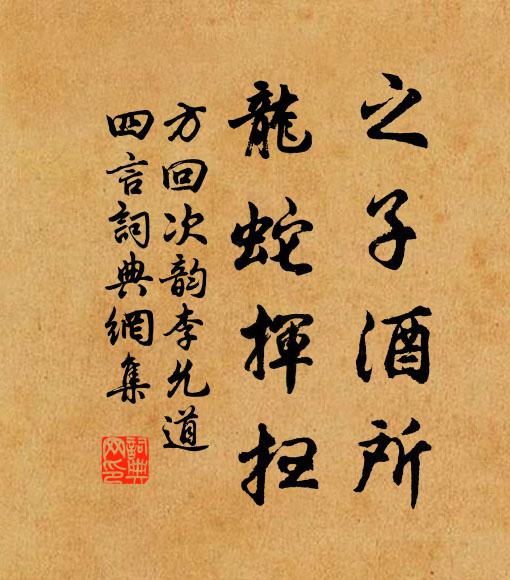 之子酒所
龍蛇揮扫
方回次韵李允道
四言詞典網集
詞典
网印